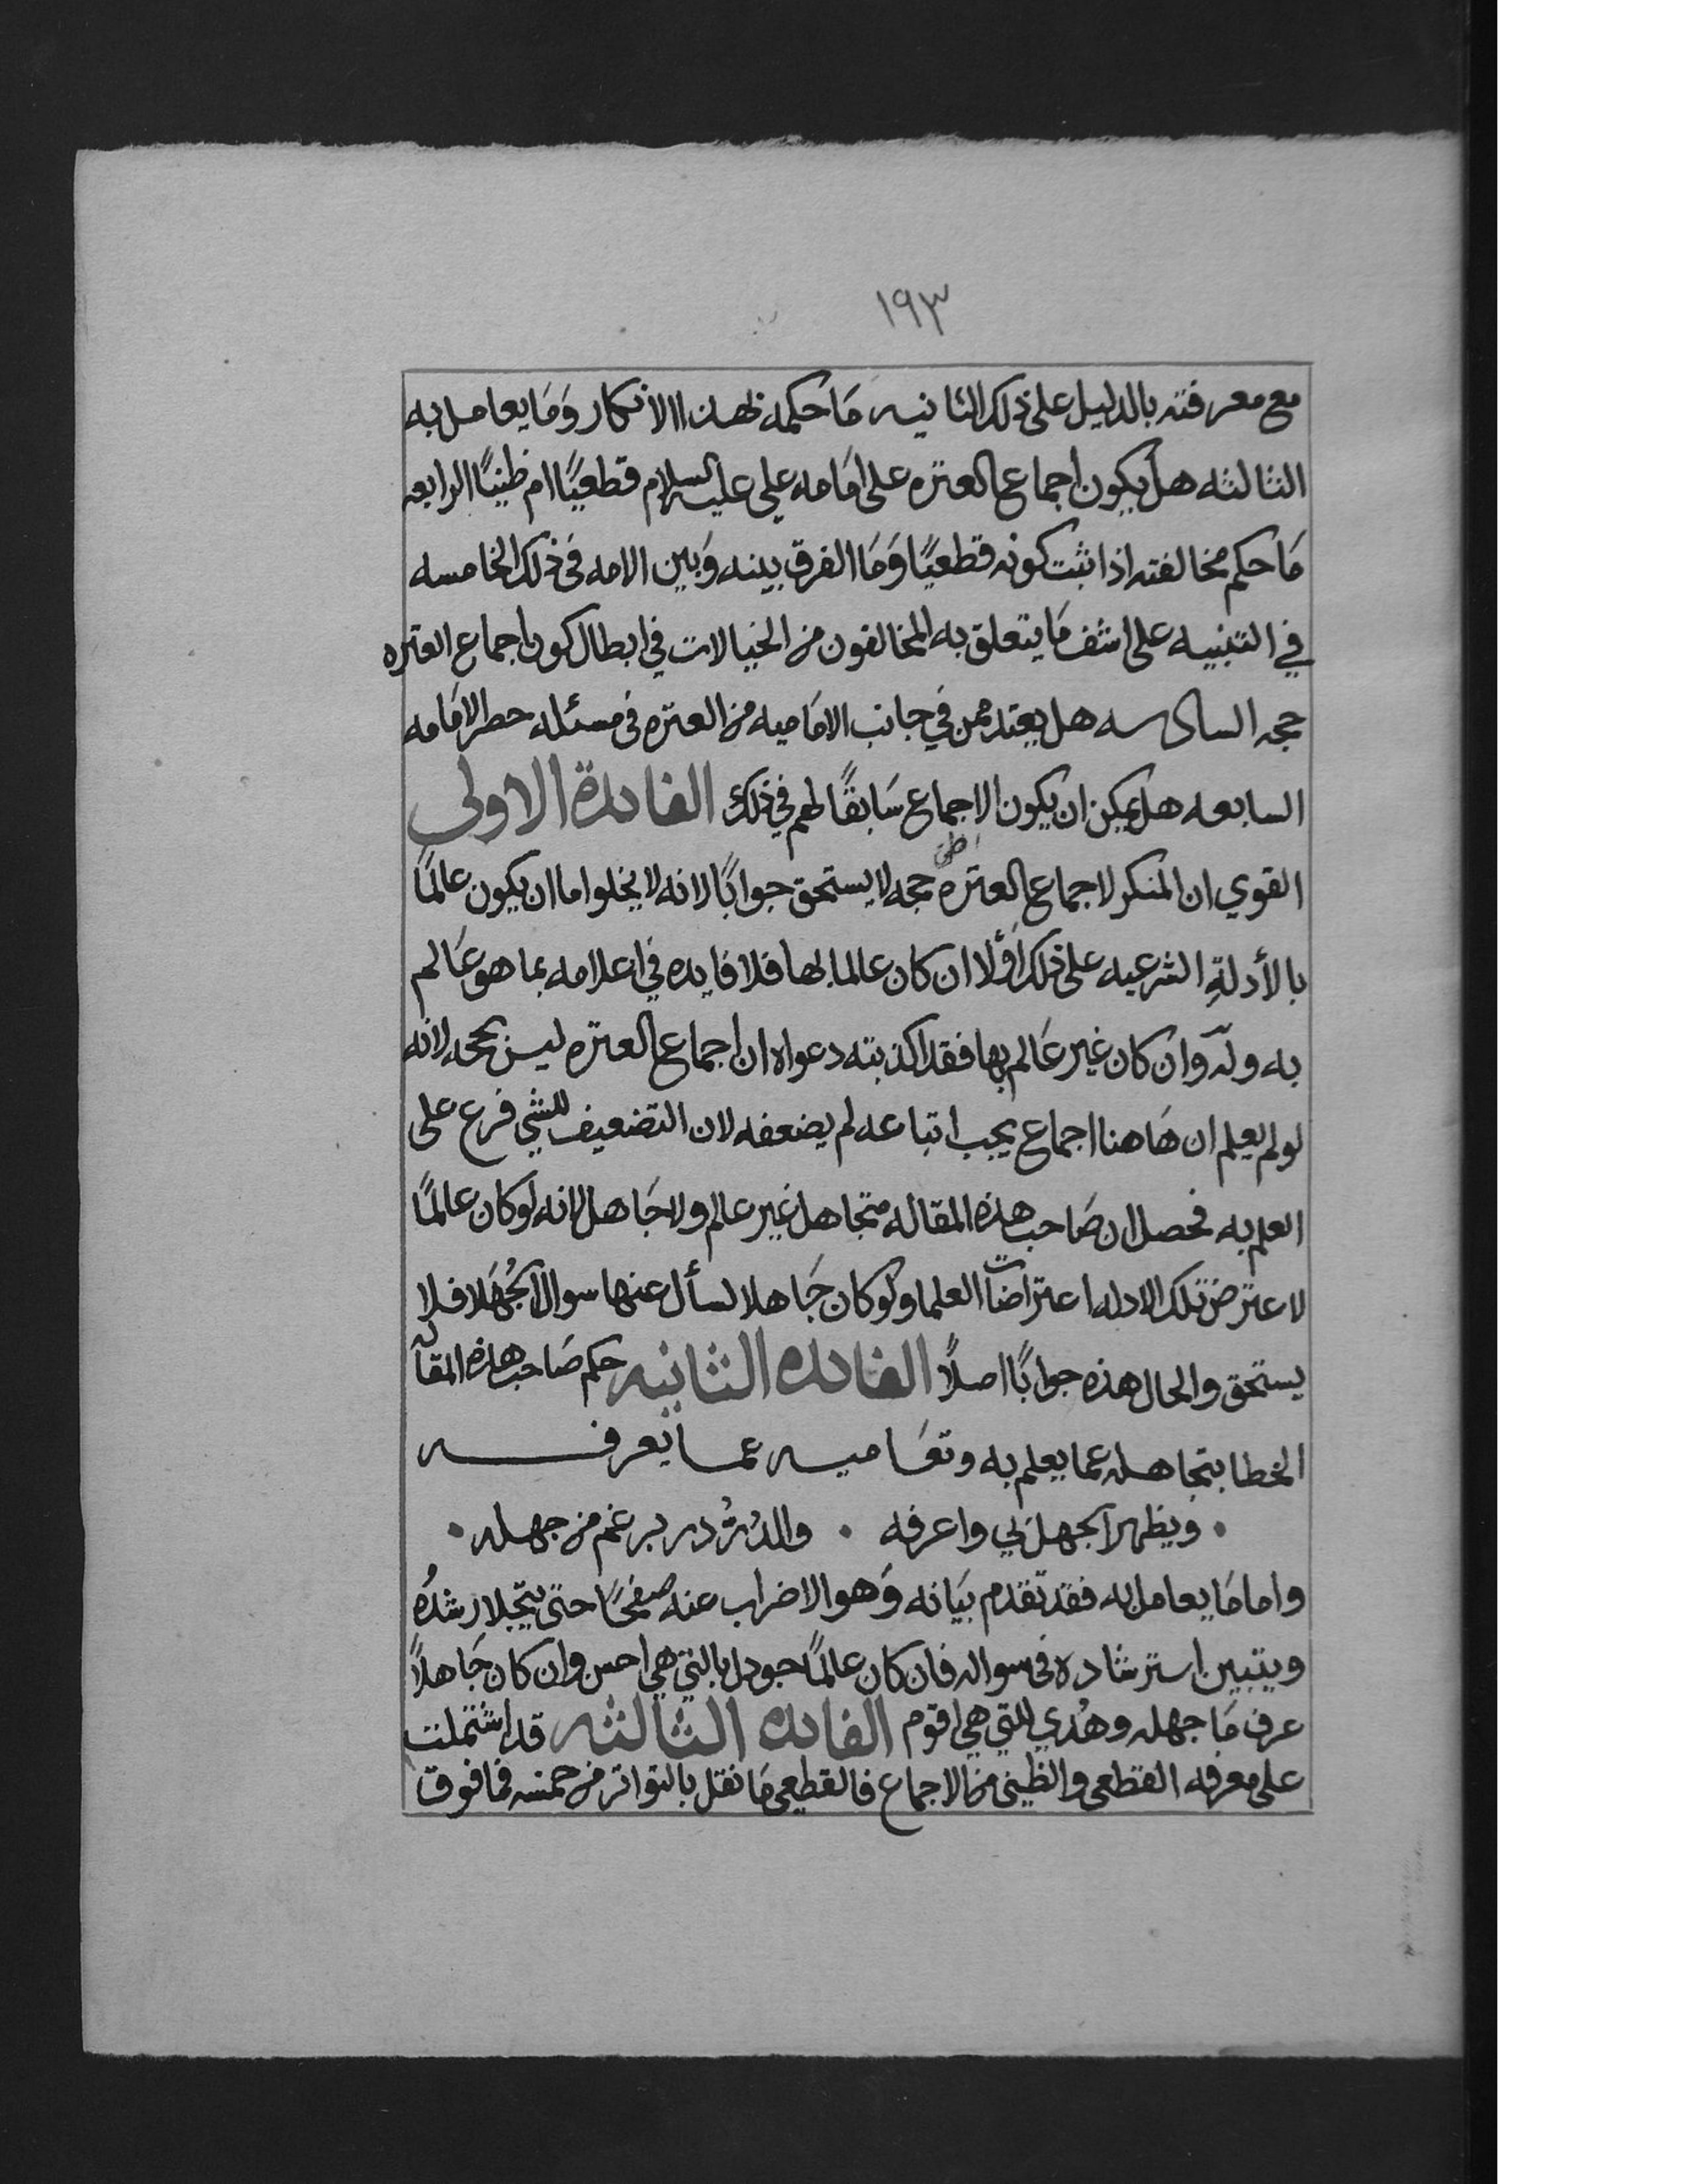 ١٩٣
مع معرفته بالدليل على ذلك الثانيه مَا حكمه لهذا الانكار وَمَا يعامل به
الثالثه هل يكون اجماع العتره على امَامه علي عليه السلام قطعيًا ام ظنيًا الرابعه
مَا حكم مخالفته اذا ثبت كونه قطعيًا وَمَا الفرق بينه وَبين الامه في ذلك الخامسه
في التنبيه على اشف مَا يتعلق به المخالفون من الخيالات في ابطال كون اجماع العتره
حجه السادسه هل يعتد بمن في جانب الامَاميه من العتره في مسئله حصر الامَامه
السابعه هل يمكن ان يكون الاجماع سَابقًا لهم في ذلك الفائدة الاولى
القوي ان المنكر لاجماع العتره حجه لا يستحق جوابًا لانه لا يخلوا اما ان يكون عالمًا
بالأدلةِ الشرعيه على ذلك أوْلا ان كان عالما بها فلا فايده في اعلامه بما هو عَالم
به وله وان كان غير عَالم بها فقد اكذبته دعواه ان اجماع العتره ليس بحجه لانه
لو لم يعلم ان هَاهنا اجماع يجب اتباعه لم يضعفه لان التضعيف للشي فرع على
العلم به فحصل ان صَاحب هذه المقاله متجاهل غير عالم ولا جَاهل لانه لو كان عالمًا
لاعترض تلك الادله اعتراضات العلما ولو كان جَاهلا لسأل عنها سوال الجُهَلا فلا
يستحق والحال هذه جوابًا اصلاً الفائده الثانيه حكم صَاحب هذه المقاله
الخطا بتجاهله عما يعلم به وتعَاميه عما يَعرفه
· ويظهر الجهل بي واعرفه · والدُرُّ در برغم من جهله ·
واما مَا يعامل به فقد تقدم بيَانه وَهو الاضراب عنه صفحًا حتى يتجلا رشدُه
ويتبين استرشاده في سواله فان كان عالمًا جودل بالتي هي احسن وان كان جَاهلاً
عرف مَا جهله وهُدي للتي هي اقوم الفائده الثالثه قد اشتملت
على معرفه القطعي والظني من الاجماع فالقطعي مَا نقل بالتواتر من خمسه فما فوق